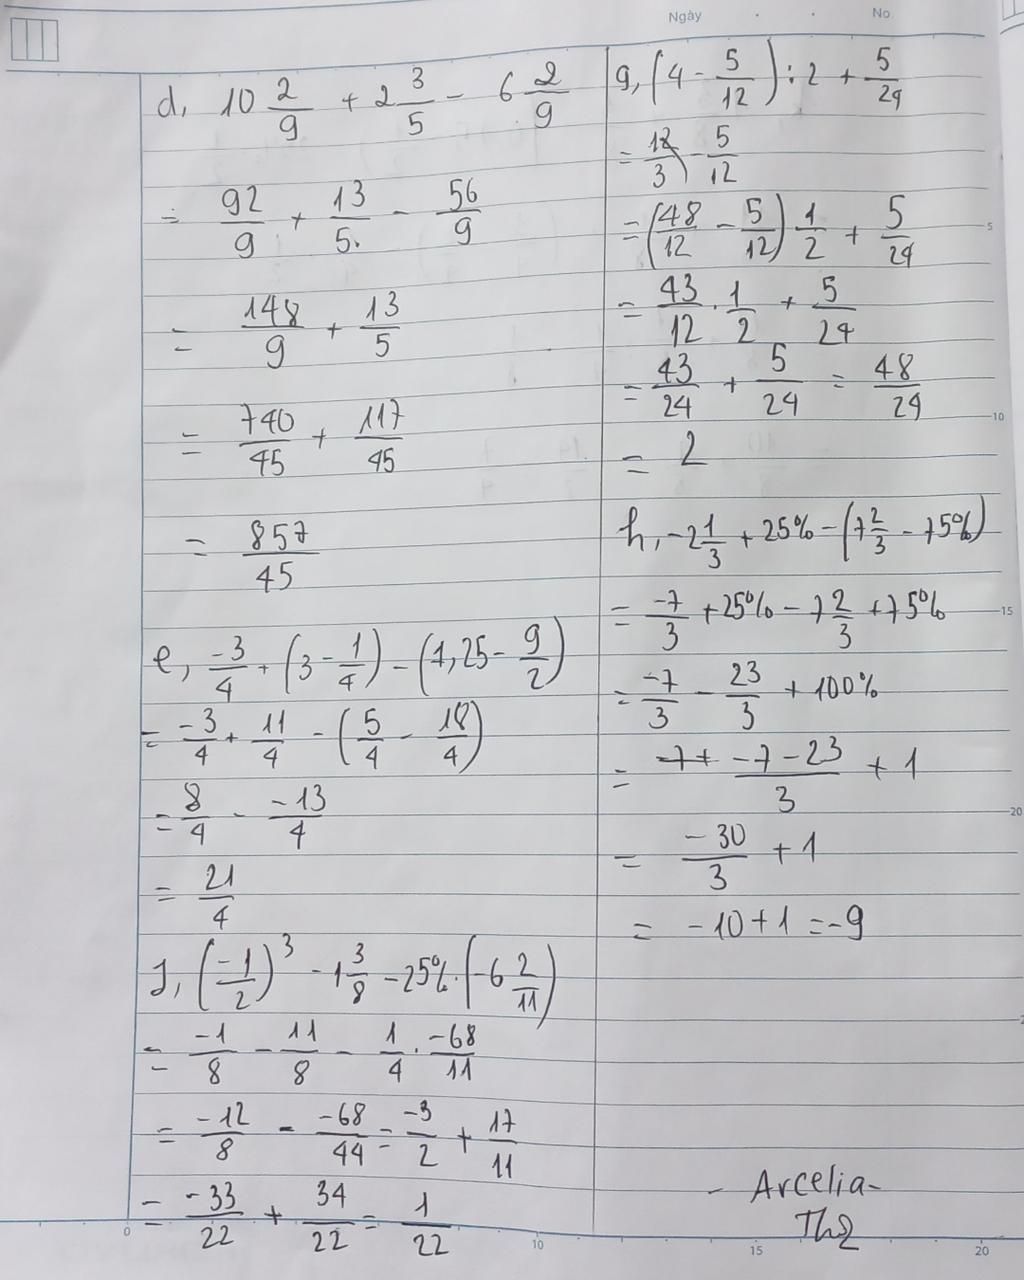 Ngày . . No
d, 10 2/9 + 2 3/5 - 6 2/9
= 92/9 + 13/5. - 56/9
= 148/9 + 13/5
= 740/45 + 117/45
= 857/45
e, -3/4 + (3 - 1/4) - (1,25 - 9/2)
= -3/4 + 11/4 - (5/4 - 18/4)
= 8/4 - -13/4
= 21/4
J, (-1/2)^3 - 1 3/8 - 25% . (-6 2/11)
= -1/8 - 11/8 - 1/4 . -68/11
= -12/8 - -68/44 = -3/2 + 17/11
= -33/22 + 34/22 = 1/22
g, (4 - 5/12) : 2 + 5/24
= 12/3 - 5/12
= (48/12 - 5/12) 1/2 + 5/24
= 43/12 . 1/2 + 5/24
= 43/24 + 5/24 = 48/24
= 2
h, -2 1/3 + 25% - (7 2/3 - 75%)
= -7/3 + 25% - 7 2/3 + 75%
= -7/3 - 23/3 + 100%
= -7 + -7-23/3 + 1
= -30/3 + 1
= -10 + 1 = -9
- Arcelia-
Th2
5
10
15
20
0 10 15 20